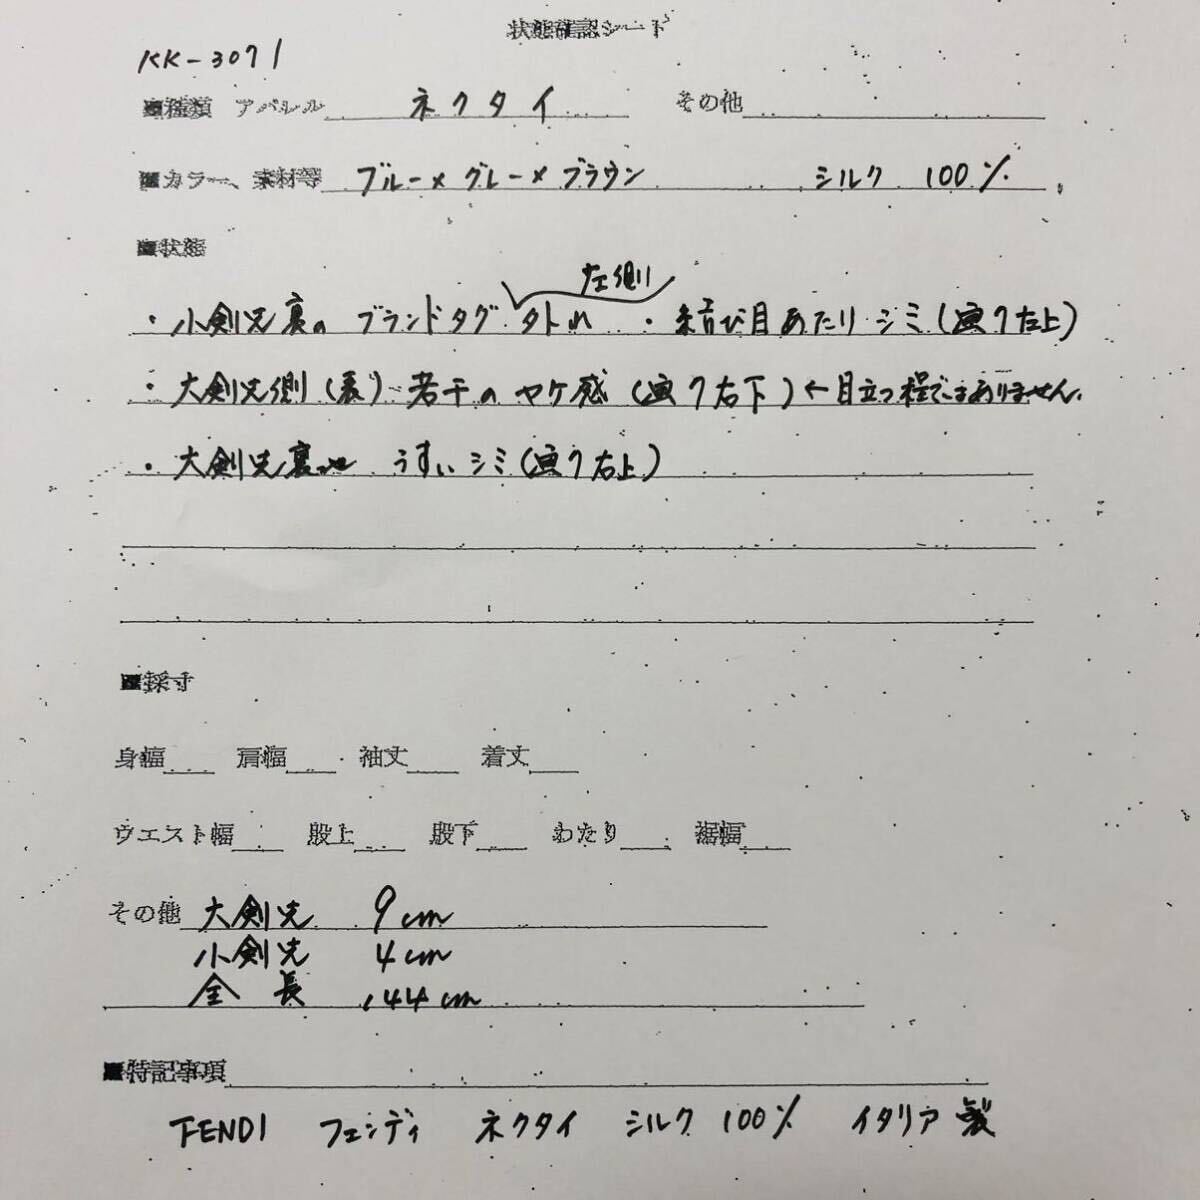 状態確認シート
KK-3071
■種類 アパレル ネクタイ その他
■カラー、素材等 ブルー×グレー×ブラウン シルク 100%
■状態
左側
・小剣先裏の ブランドタグ 外れ ・結び目あたり シミ(画7左上)
・大剣先側(表) 若干の ヤケ感 (画7右下) ← 目立つ程ではありません.
・大剣先裏地 うすいシミ(画7右上)
■採寸
身幅 肩幅 袖丈 着丈
ウエスト幅 股上 股下 わたり 裾幅
その他 大剣先 9cm
小剣先 4cm
全長 144cm
■特記事項
FENDI フェンディ ネクタイ シルク 100% イタリア製